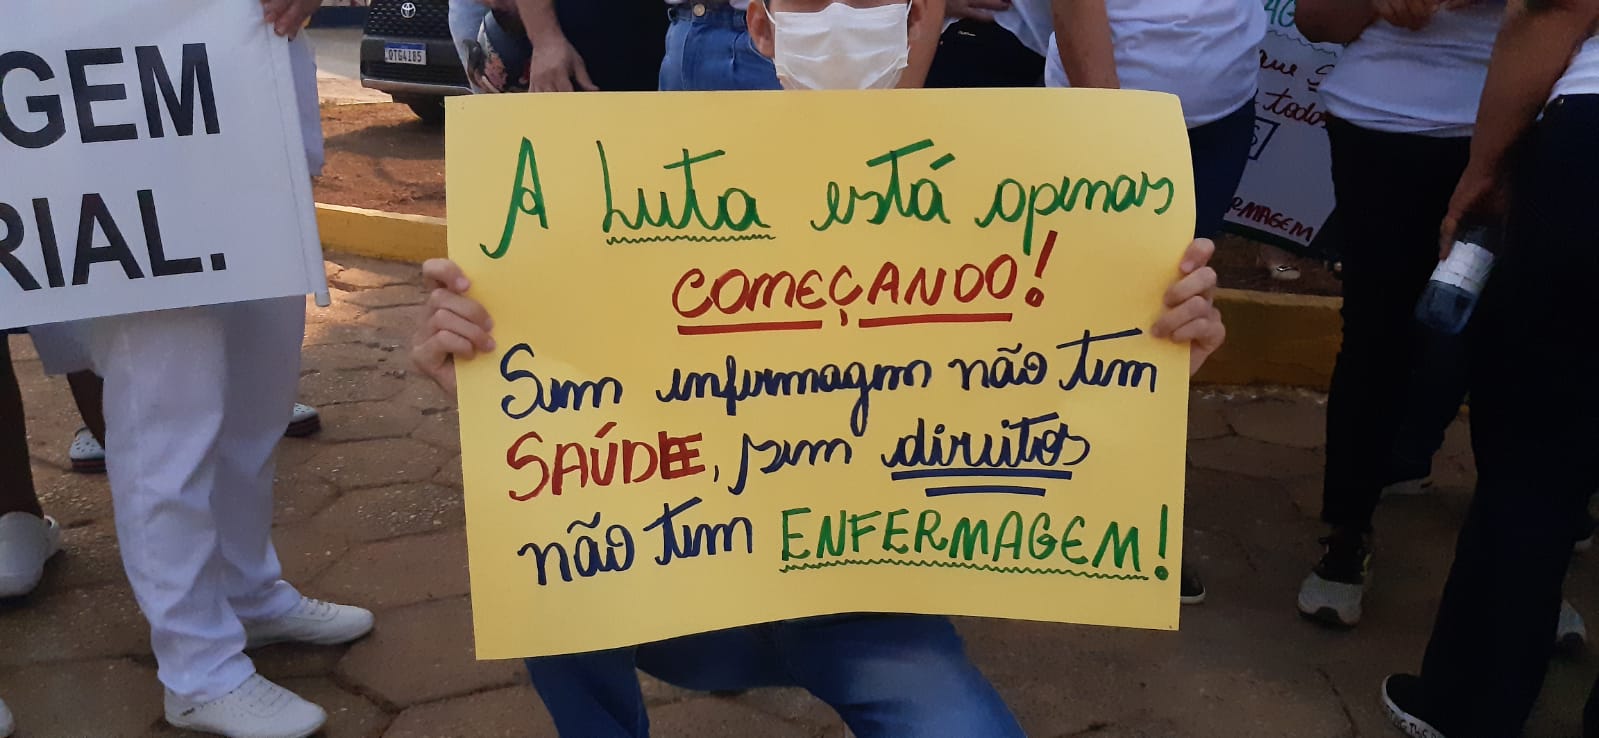 GEM
RIAL.
A Luta está apenas
COMEÇANDO!
Sem enfermagem não tem
SAÚDE, sem direitos
não tem ENFERMAGEM!
que
todos
RMAGEM